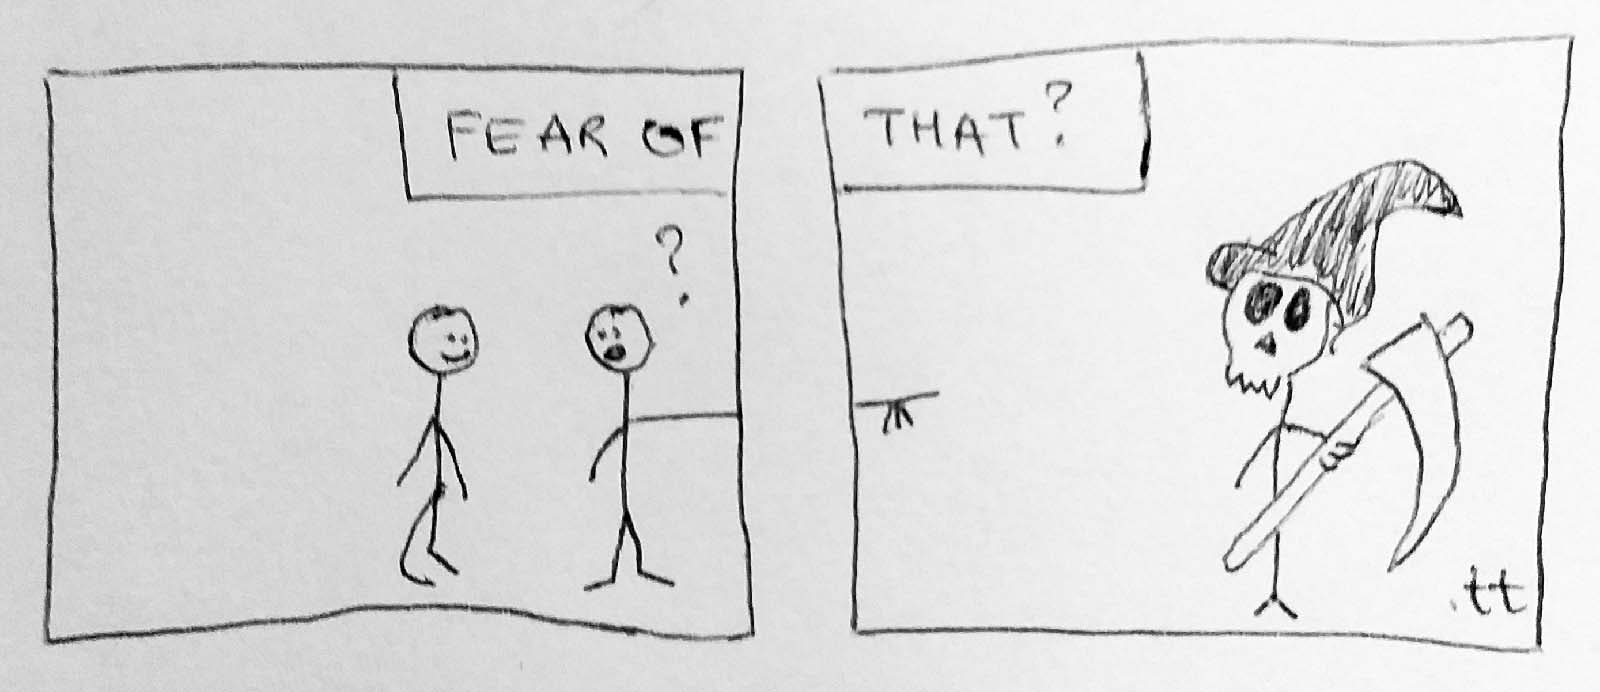 FEAR OF
THAT?
?
.tt